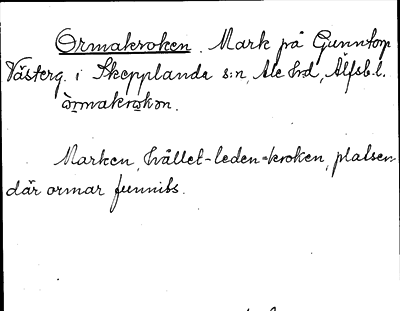 Ormakroken. Mark på Gunntorp
Västerg. i Skepplanda s:n, Ale hd, Älfsb. l.
òrmakrωkαn.
Marken, hållet-leden-kroken, platsen
där ormar funnits.